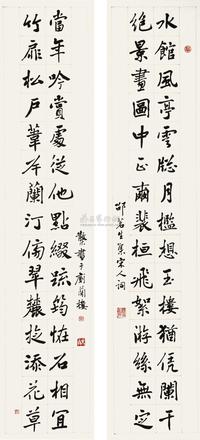 水館風亭雲牕月檻想玉樓猶凭闌干
絕景畫圖中正裴桓飛絮游絲無定
邵生集宋人詞
竹扉松戶葦岸蘭汀傍翠麓旋添花草
當年吟賞處從他點綴疏筠怪石相宜
書于劉蘭樓